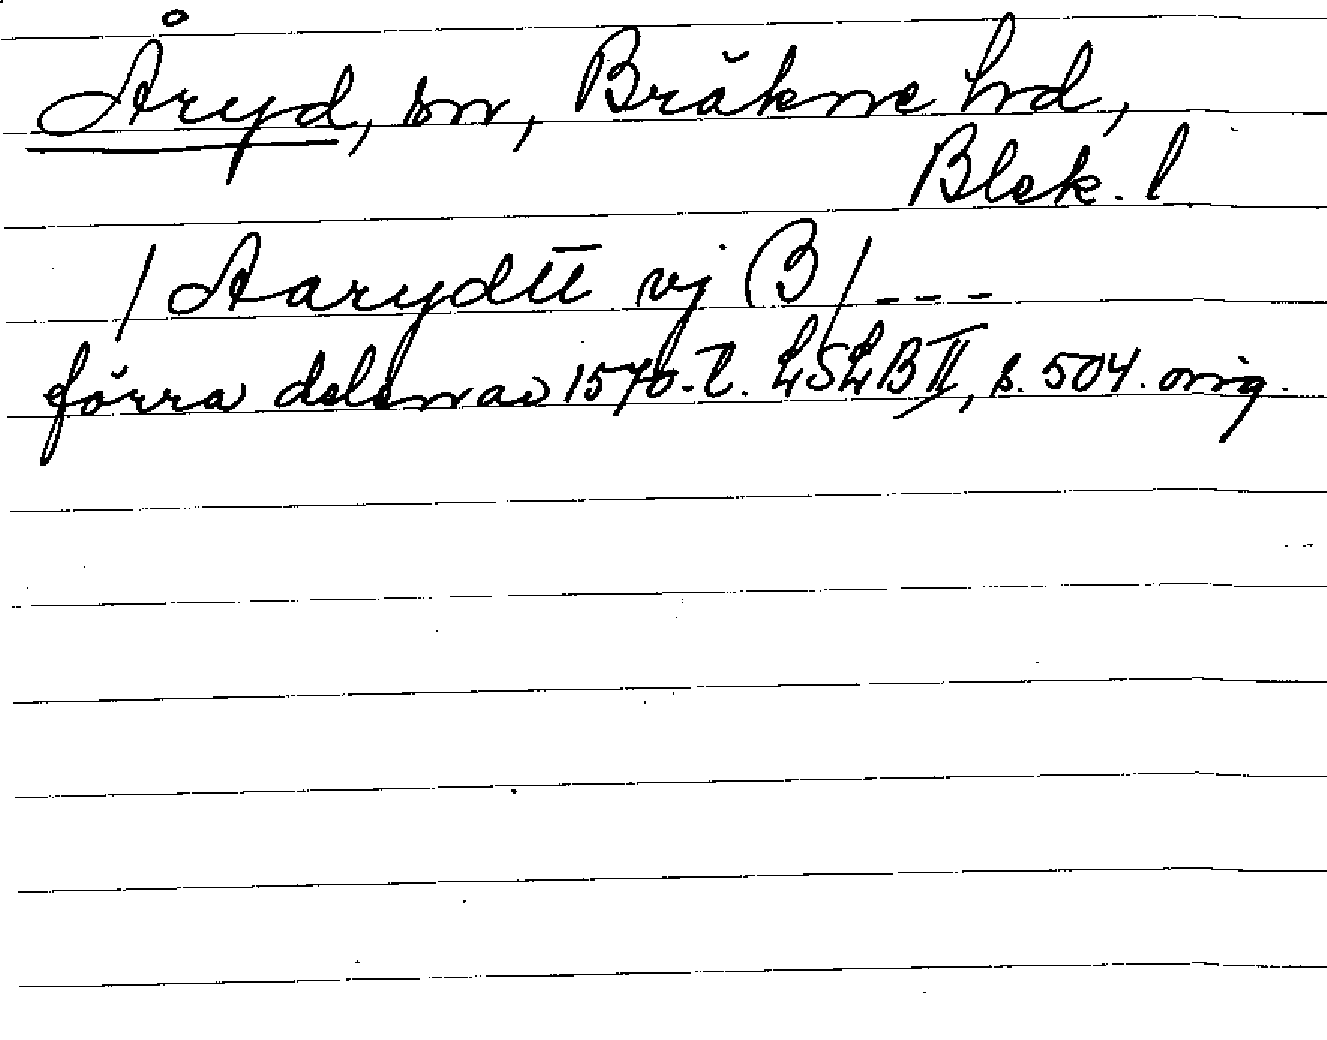 Åryd, sn, Bräkne hd,
Blek. l.
/ Aarydtt vj B / ---
förra delen av 1570-t. LSLB II, s. 504. orig.